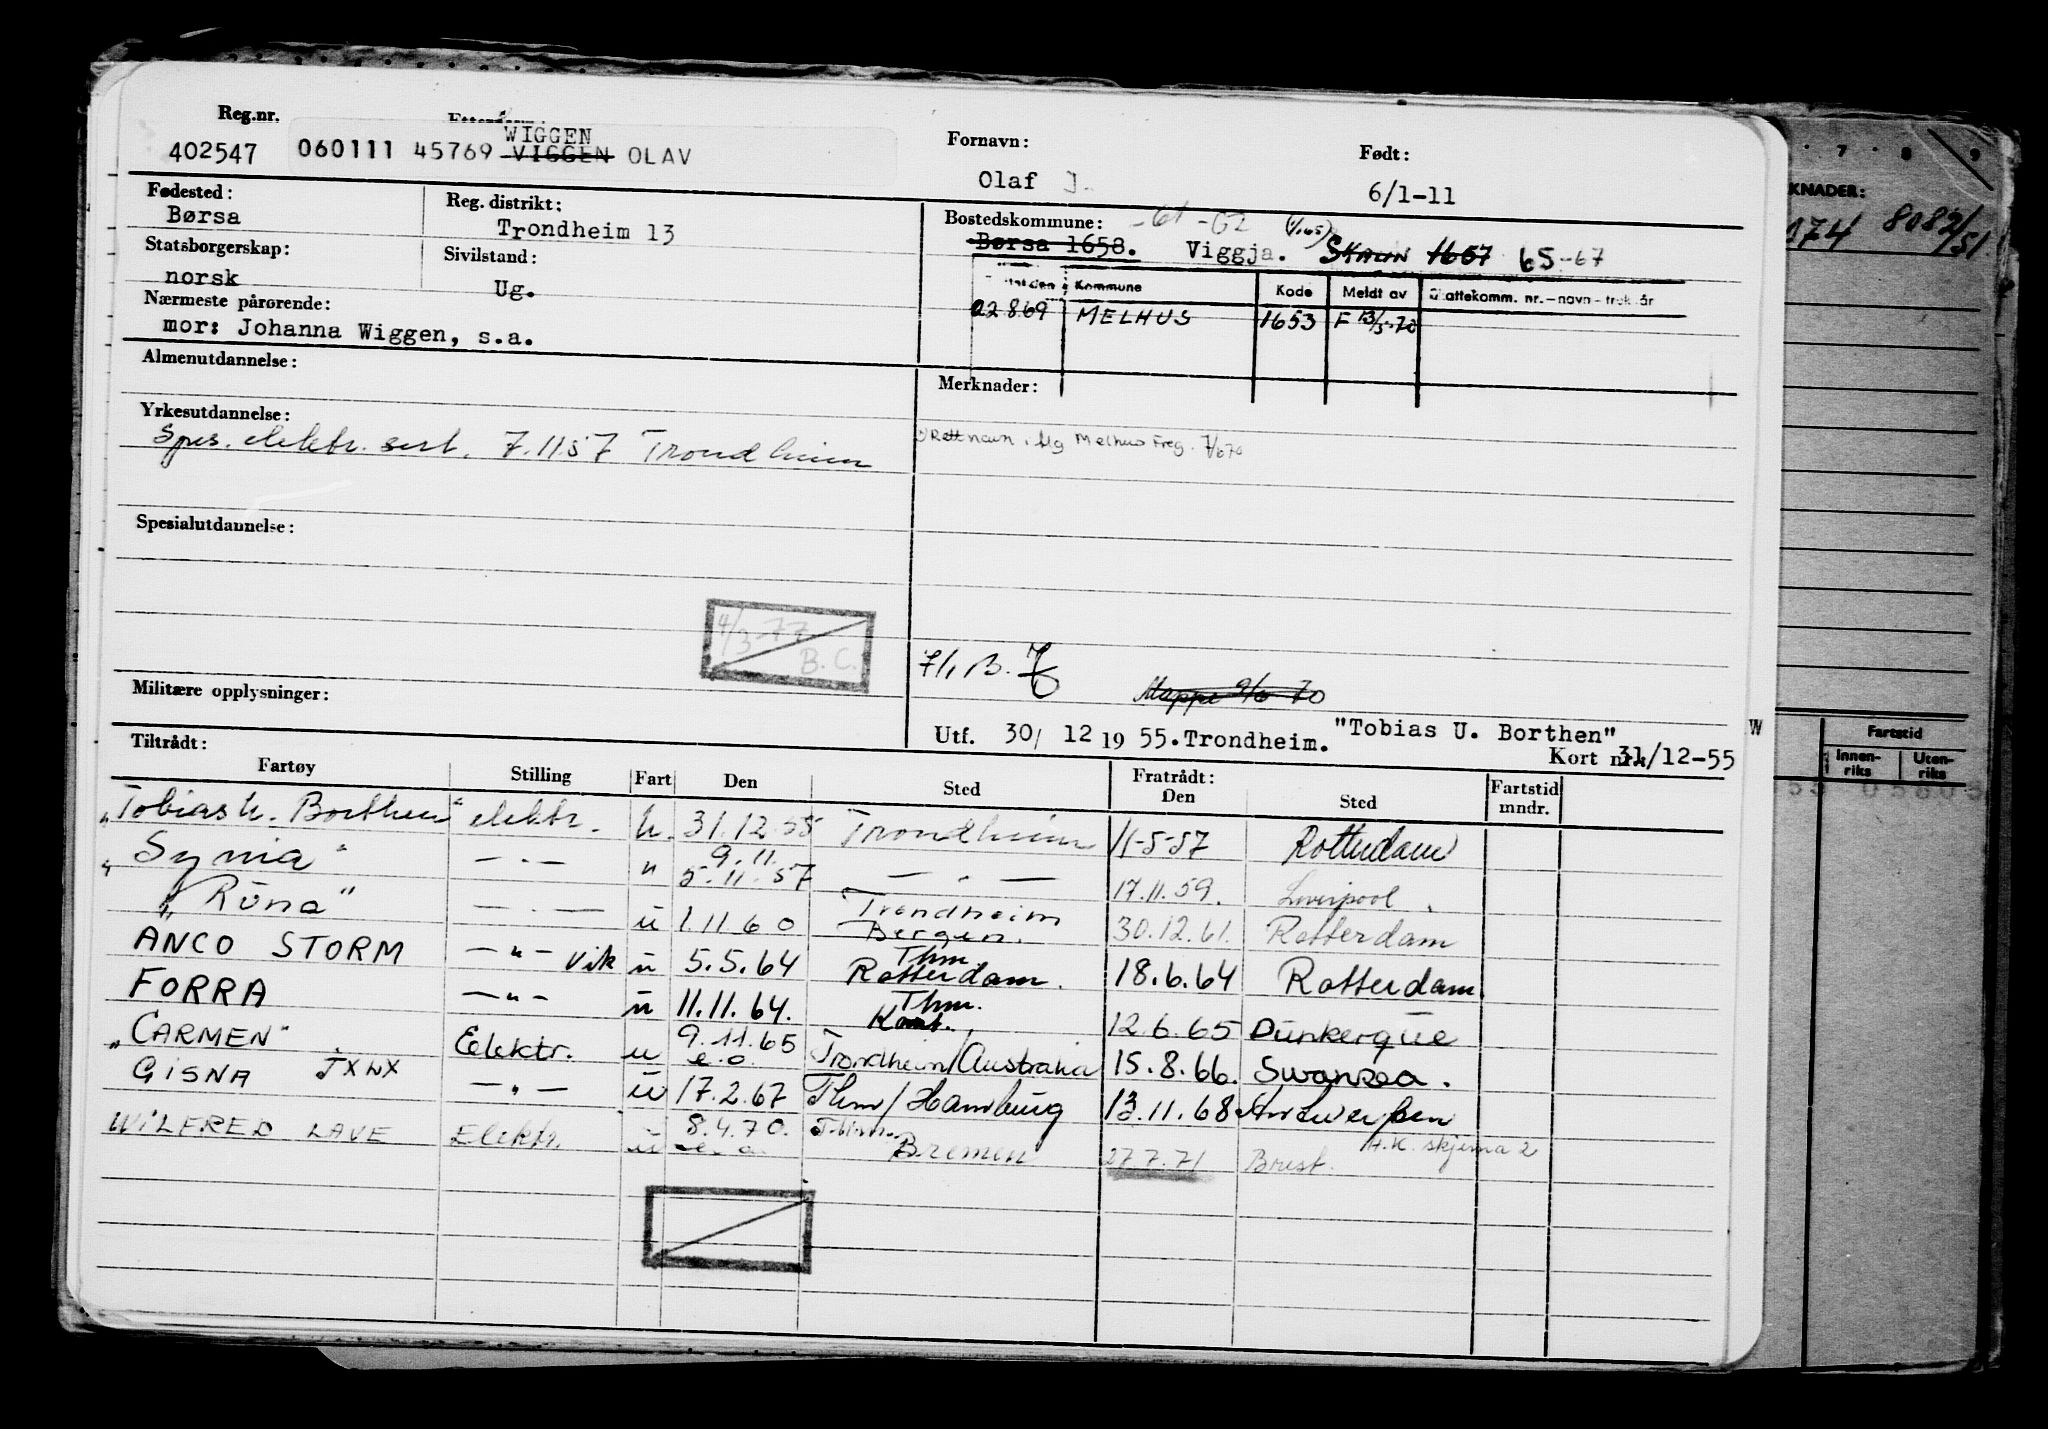 Reg.nr. Fornavn: Født:
402547 060111 45769 WIGGEN VIGGEN OLAV
Olaf J. 6/1-11
Fødested: Reg. distrikt: Bostedskommune: -61 -62
Børsa Trondheim 13 Børsa 1658. Viggja. SKAUN 1657 65-67
Statsborgerskap: Sivilstand:
norsk Ug.
Kommune Kode Meldt av Skattekomm. nr. – navn – trek. år
22869 MELHUS 1653 F 13/5-70
Nærmeste pårørende:
mor: Johanna Wiggen, s.a.
Almenutdannelse: Merknader:
Yrkesutdannelse:
Spes. elektr. sert. 7.11.57 Trondheim
Rett navn i flg Melhus Freg. 7/670
Spesialutdannelse:
4/3-77
B.C.
7/1 B.
Mappe 9/6 70
Militære opplysninger:
Utf. 30/ 12 19 55. Trondheim. "Tobias U. Borthen" W
Kort nr. 31/12-55
Tiltrådt: Fratrådt:
Fartøy Stilling Fart Den Sted Den Sted Fartstid mndr.
"Tobias U. Borthen" elektr. u. 31.12.55 Trondheim 11-5-57 Rotterdam
"Synia" — " — " 9.11. 5.11.57 — " — 17.11.59. Liverpool.
"Runa" — " — u 1.11 60 Trondheim Bergen. 30.12.61. Rotterdam
ANCO STORM — " — Vik u 5.5.64 Thm. Rotterdam. 18.6.64 Rotterdam.
FORRA — " — u 11.11.64. Thm. 12.6.65 Dunkerque
"CARMEN" Elektr. u 9.11.65 e.o. Trondheim/Australia 15.8.66. Swansea.
GISNA JXWX — " — u 17.2.67 Thm/Hamburg 13.11.68 Antwerpen
WILFRED LAVE Elektr. u 8.4.70. e.o. Thm. Bremen 27.7.71 Brest. A.K. skjema 2
7 8 9
KNADER:
174 8082/51
Fartstid
Innenriks Utenriks